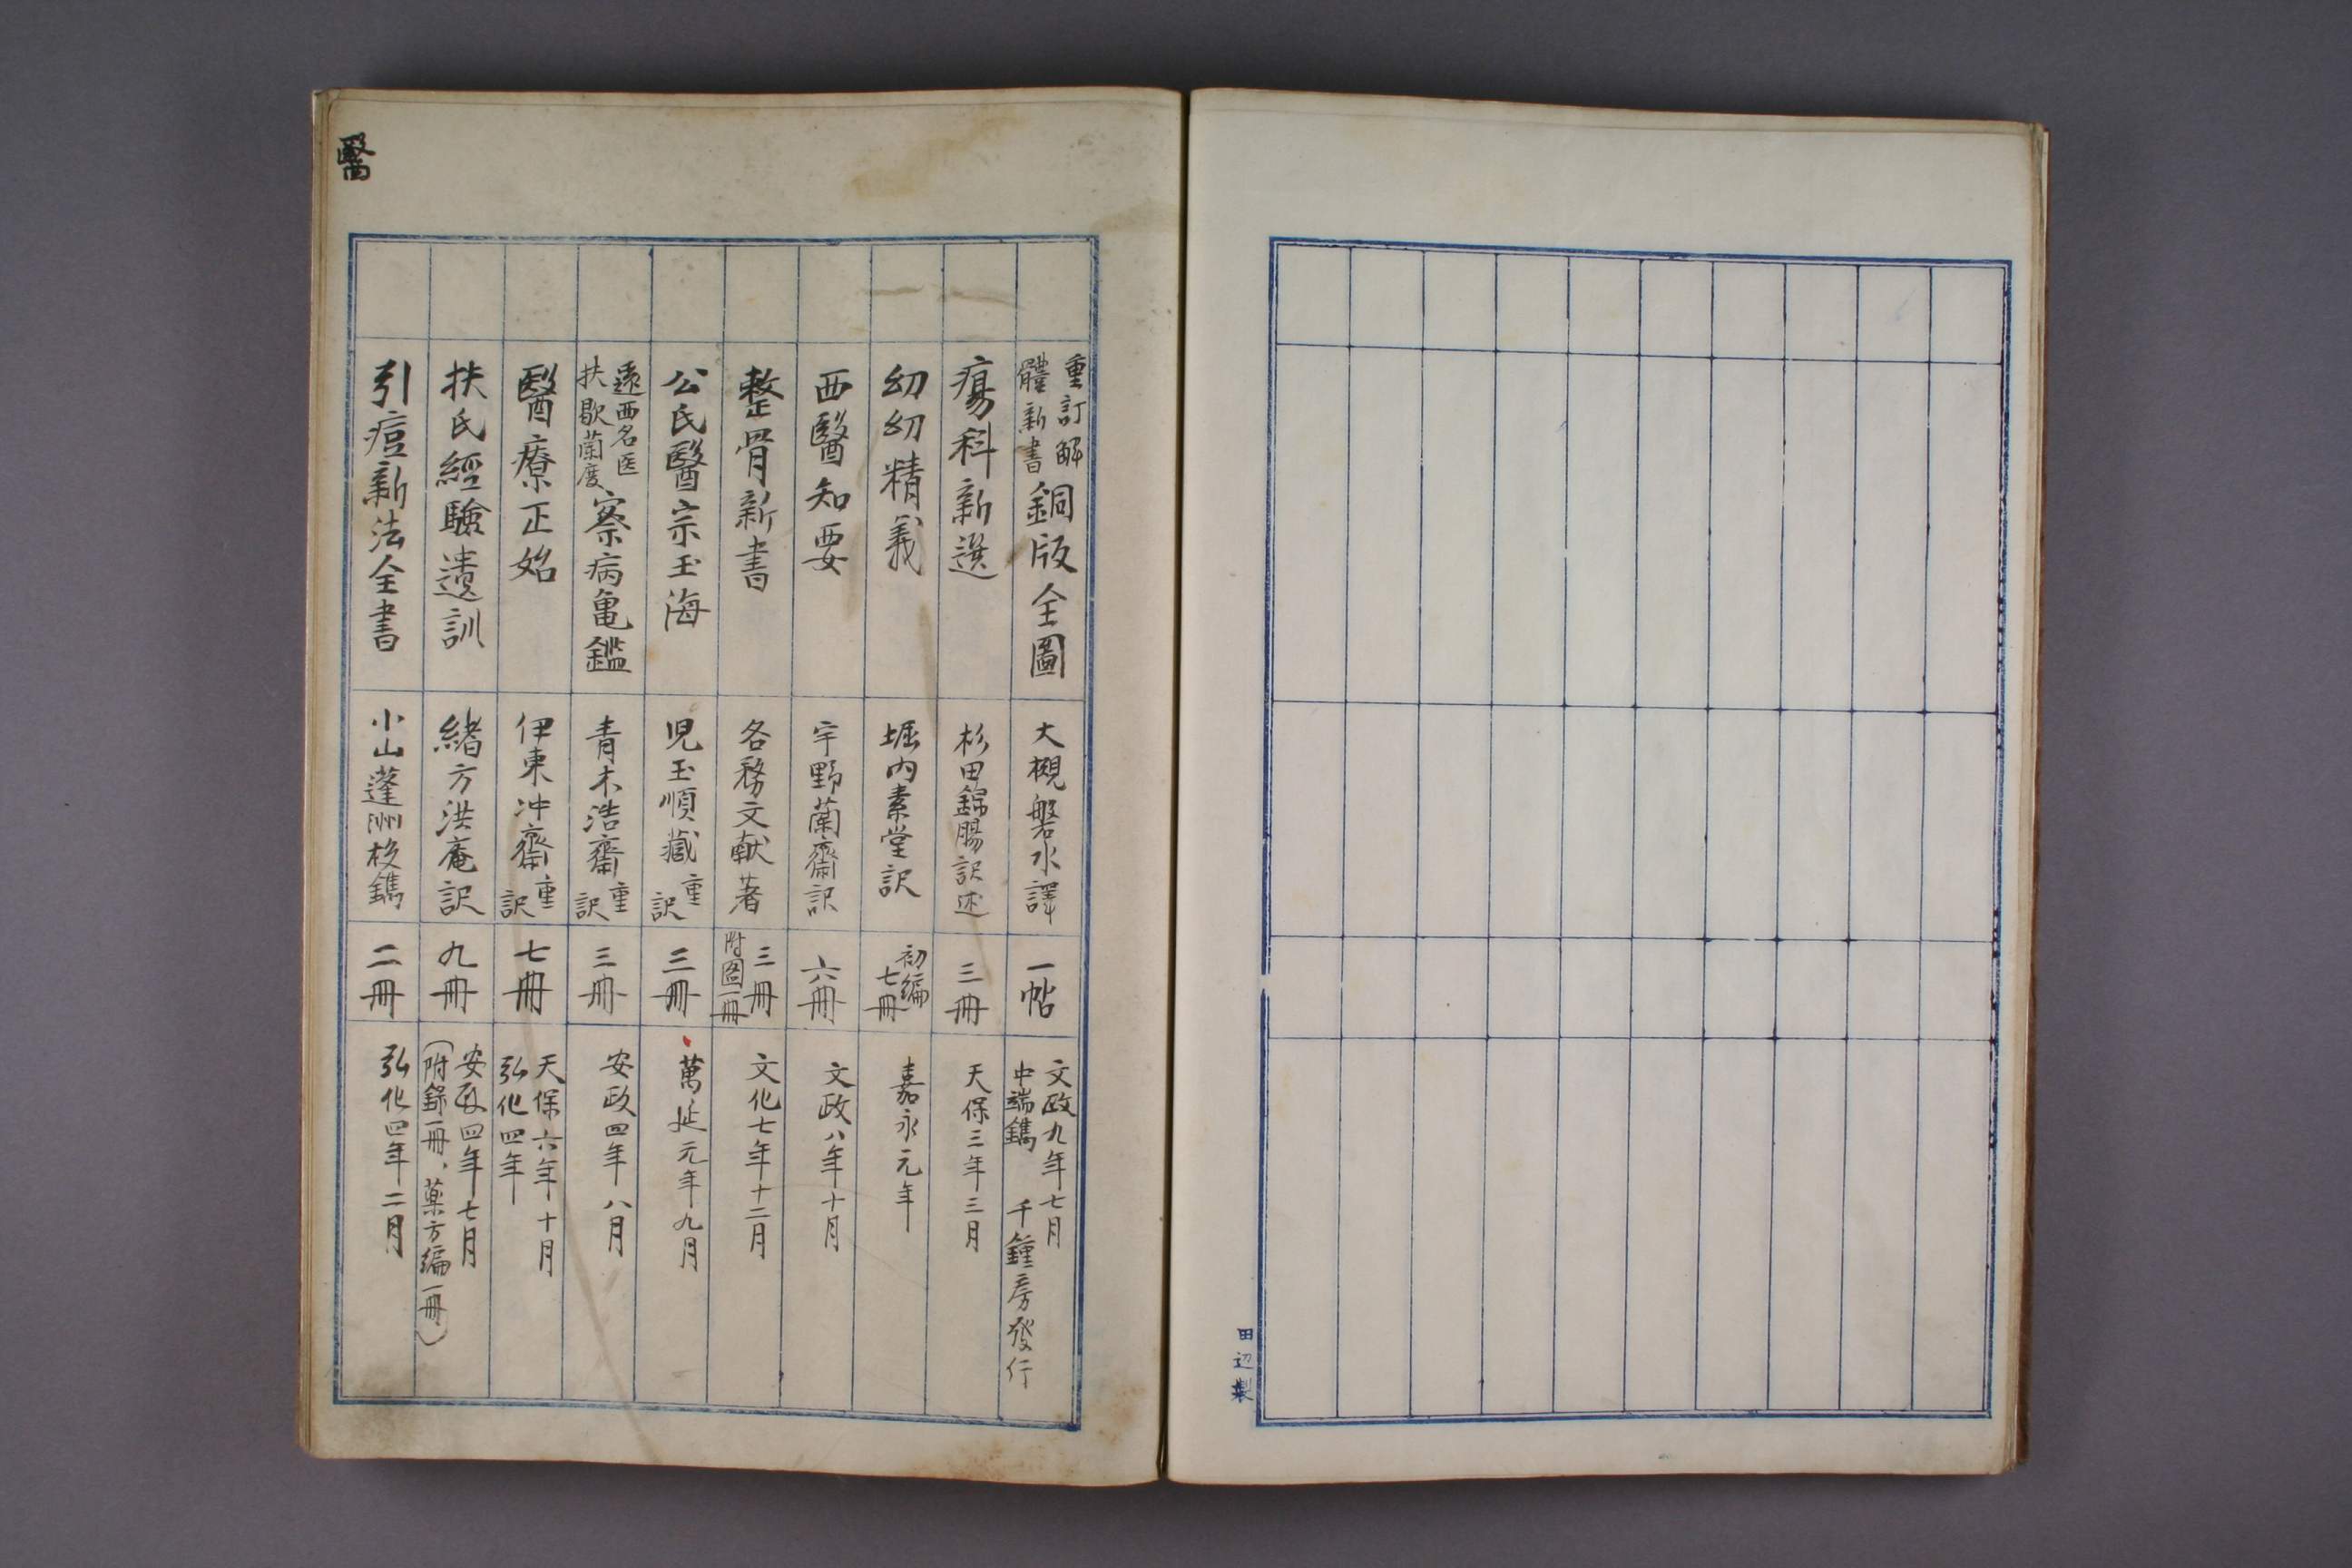 田辺製
醫
重訂解體新書銅版全圖 大槻磐水譯 一帖 文政九年七月中端鐫 千鍾房發行
瘍科新選 杉田錦腸訳述 三冊 天保三年三月
幼幼精義 堀内素堂訳 初編七冊 嘉永元年
西醫知要 宇野蘭齋訳 六冊 文政八年十月
整骨新書 各務文献著 三冊附図一冊 文化七年十二月
公氏醫宗玉海 児玉順蔵重訳 三冊 萬延元年九月
遠西名医扶歇蘭度察病亀鑑 青木浩齋重訳 三冊 安政四年八月
醫療正始 伊東冲齋重訳 七冊 天保六年十月弘化四年
扶氏經驗遺訓 緒方洪庵訳 九冊 安政四年七月(附錄一冊、薬方編一冊)
引痘新法全書 小山蓬洲校鐫 二冊 弘化四年二月